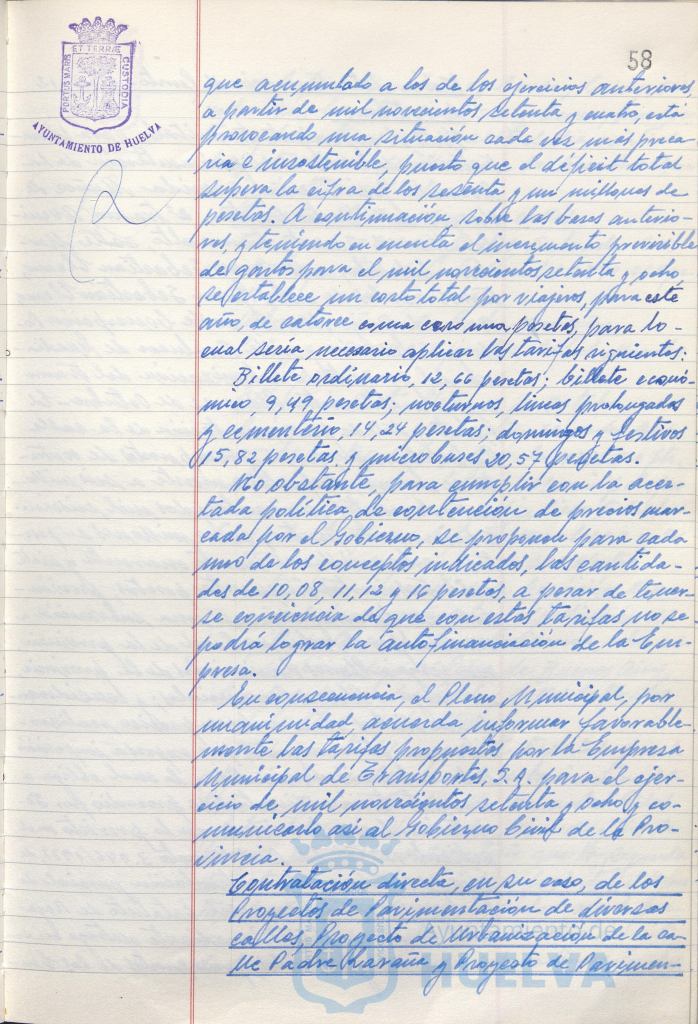 58
PORTUS MARIS ET TERRÆ CUSTODIA
AYUNTAMIENTO DE HUELVA
que acumulado a los de los ejercicios anteriores
a partir de mil novecientos setenta y cuatro, está
provocando una situación cada vez más preca-
ria e insostenible, puesto que el déficit total
supera la cifra de los sesenta y un millones de
pesetas. A continuación, sobre las bases anterio-
res, y teniendo en cuenta el incremento previsible
de gastos para el mil novecientos setenta y ocho,
se establece un costo total por viajeros, para este
año, de catorce coma cero una pesetas, para lo
cual sería necesario aplicar las tarifas siguientes:
Billete ordinario, 12,66 pesetas; billete econó-
mico, 9,49 pesetas; nocturnos, líneas prolongadas
y cementerio, 14,24 pesetas; domingos y festivos
15,82 pesetas y microbuses 20,57 pesetas.
No obstante, para cumplir con la acer-
tada política de contención de precios mar-
cada por el Gobierno, se proponen para cada
uno de los conceptos indicados, las cantida-
des de 10, 08, 11, 12 y 16 pesetas, a pesar de tener-
se conciencia de que con estas tarifas no se
podrá lograr la autofinanciación de la Em-
presa.
En consecuencia, el Pleno Municipal, por
unanimidad, acuerda informar favorable-
mente las tarifas propuestas por la Empresa
Municipal de Transportes, S.A. para el ejer-
cicio de mil novecientos setenta y ocho y co-
municarlo así al Gobierno Civil de la Pro-
vincia.
Contratación directa, en su caso, de los
Proyectos de Pavimentación de diversas
calles, Proyecto de Urbanización de la ca-
lle Padre Laraña y Proyecto de Pavimen-
Ayuntamiento de
HUELVA